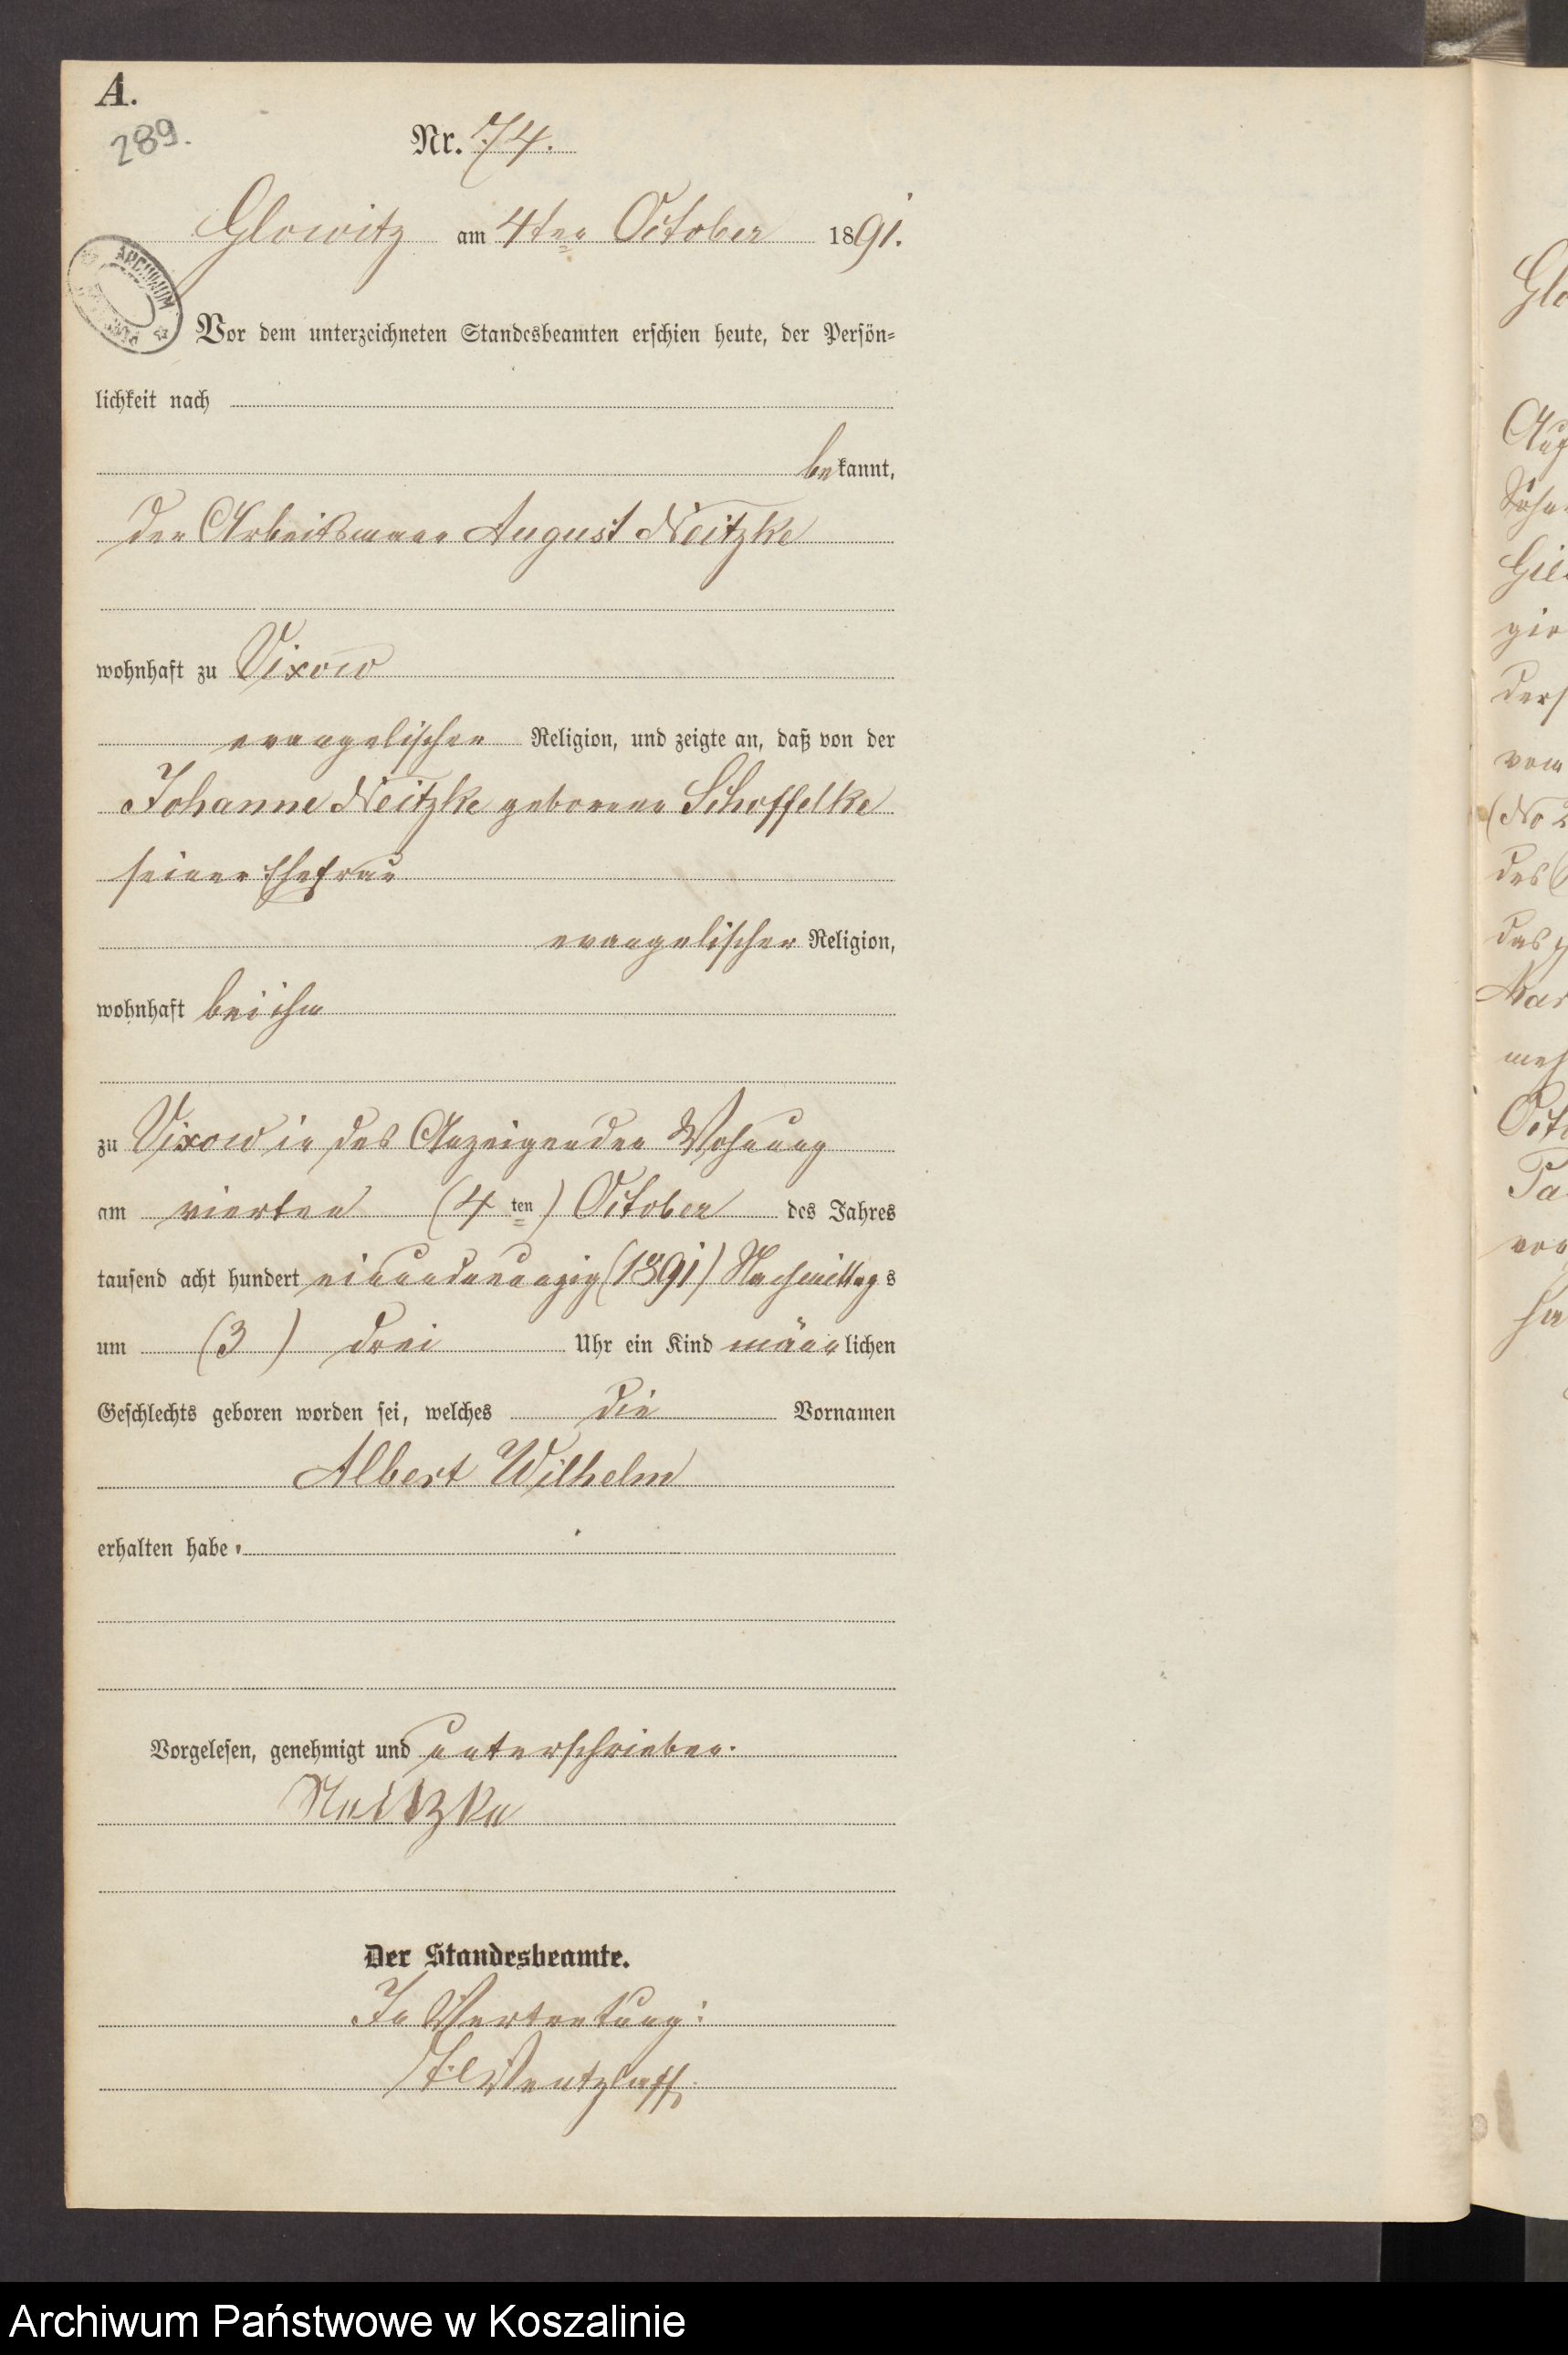 A.
289.
Nr. 74.
Glowitz am 4ten October 1891.
ARCHIWUM
Vor dem unterzeichneten Standesbeamten erschien heute, der Persön-
lichkeit nach
bekannt,
der Arbeitsmann August Neitzke
wohnhaft zu Vixow
evangelischer Religion, und zeigte an, daß von der
Johanne Neitzke geborene Schoffelke
seiner Ehefrau
evangelischer Religion,
wohnhaft bei ihm
zu Vixow in des Anzeigenden Wohnung
am vierten (4 ten) October des Jahres
tausend acht hundert einundneunzig (1891) Nachmittags
um (3) drei Uhr ein Kind männlichen
Geschlechts geboren worden sei, welches die Vornamen
Albert Wilhelm
erhalten habe.
Vorgelesen, genehmigt und unterschrieben.
Neitzke
Der Standesbeamte.
In Vertretung:
Wentzlaff
Glo
Aug
vom
(No 2
des
das
Octo
Archiwum Państwowe w Koszalinie